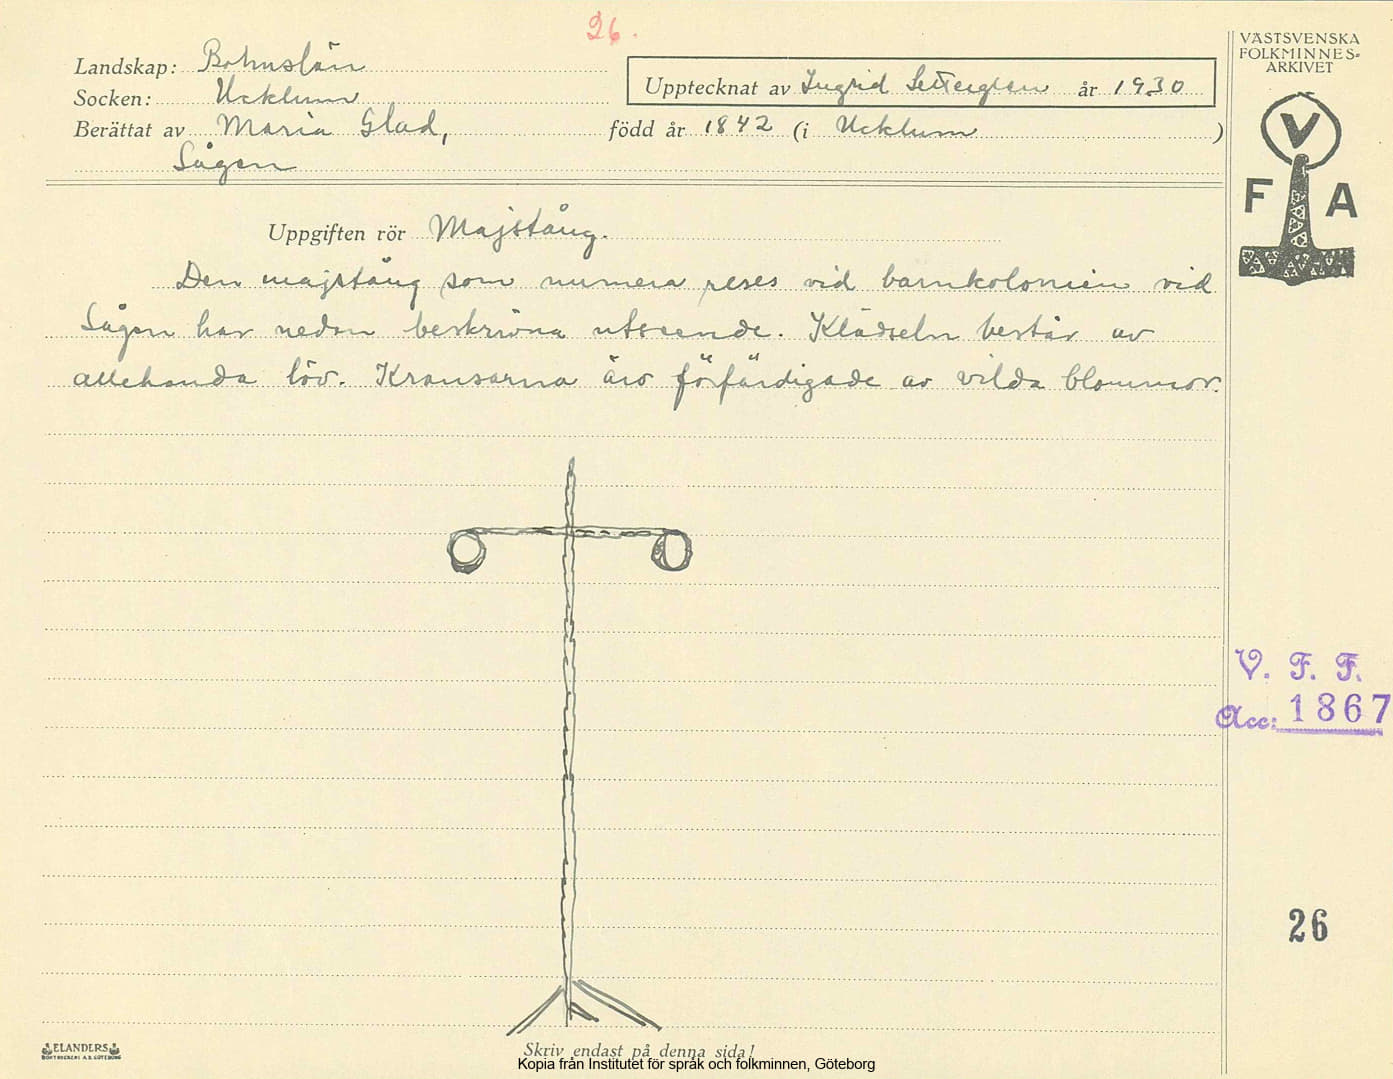 26.
Landskap: Bohuslän
Socken: Ucklum
Berättat av Maria Glad,
Sågen
Upptecknat av Ingrid Settergren år 1930
född år 1842 (i Ucklum )
Uppgiften rör Majstång.
Den majstång som numera reses vid barnkolonien vid
Sågen har nedan beskrivna utseende. Klädseln består av
allehanda löv. Kransarna äro förfärdigade av vilda blommor.
VÄSTSVENSKA
FOLKMINNES-
ARKIVET
V
F A
V. F. F.
Acc: 1867
26
ELANDERS
BOKTRYCKERI A.B. GÖTEBORG
Skriv endast på denna sida!
Kopia från Institutet för språk och folkminnen, Göteborg